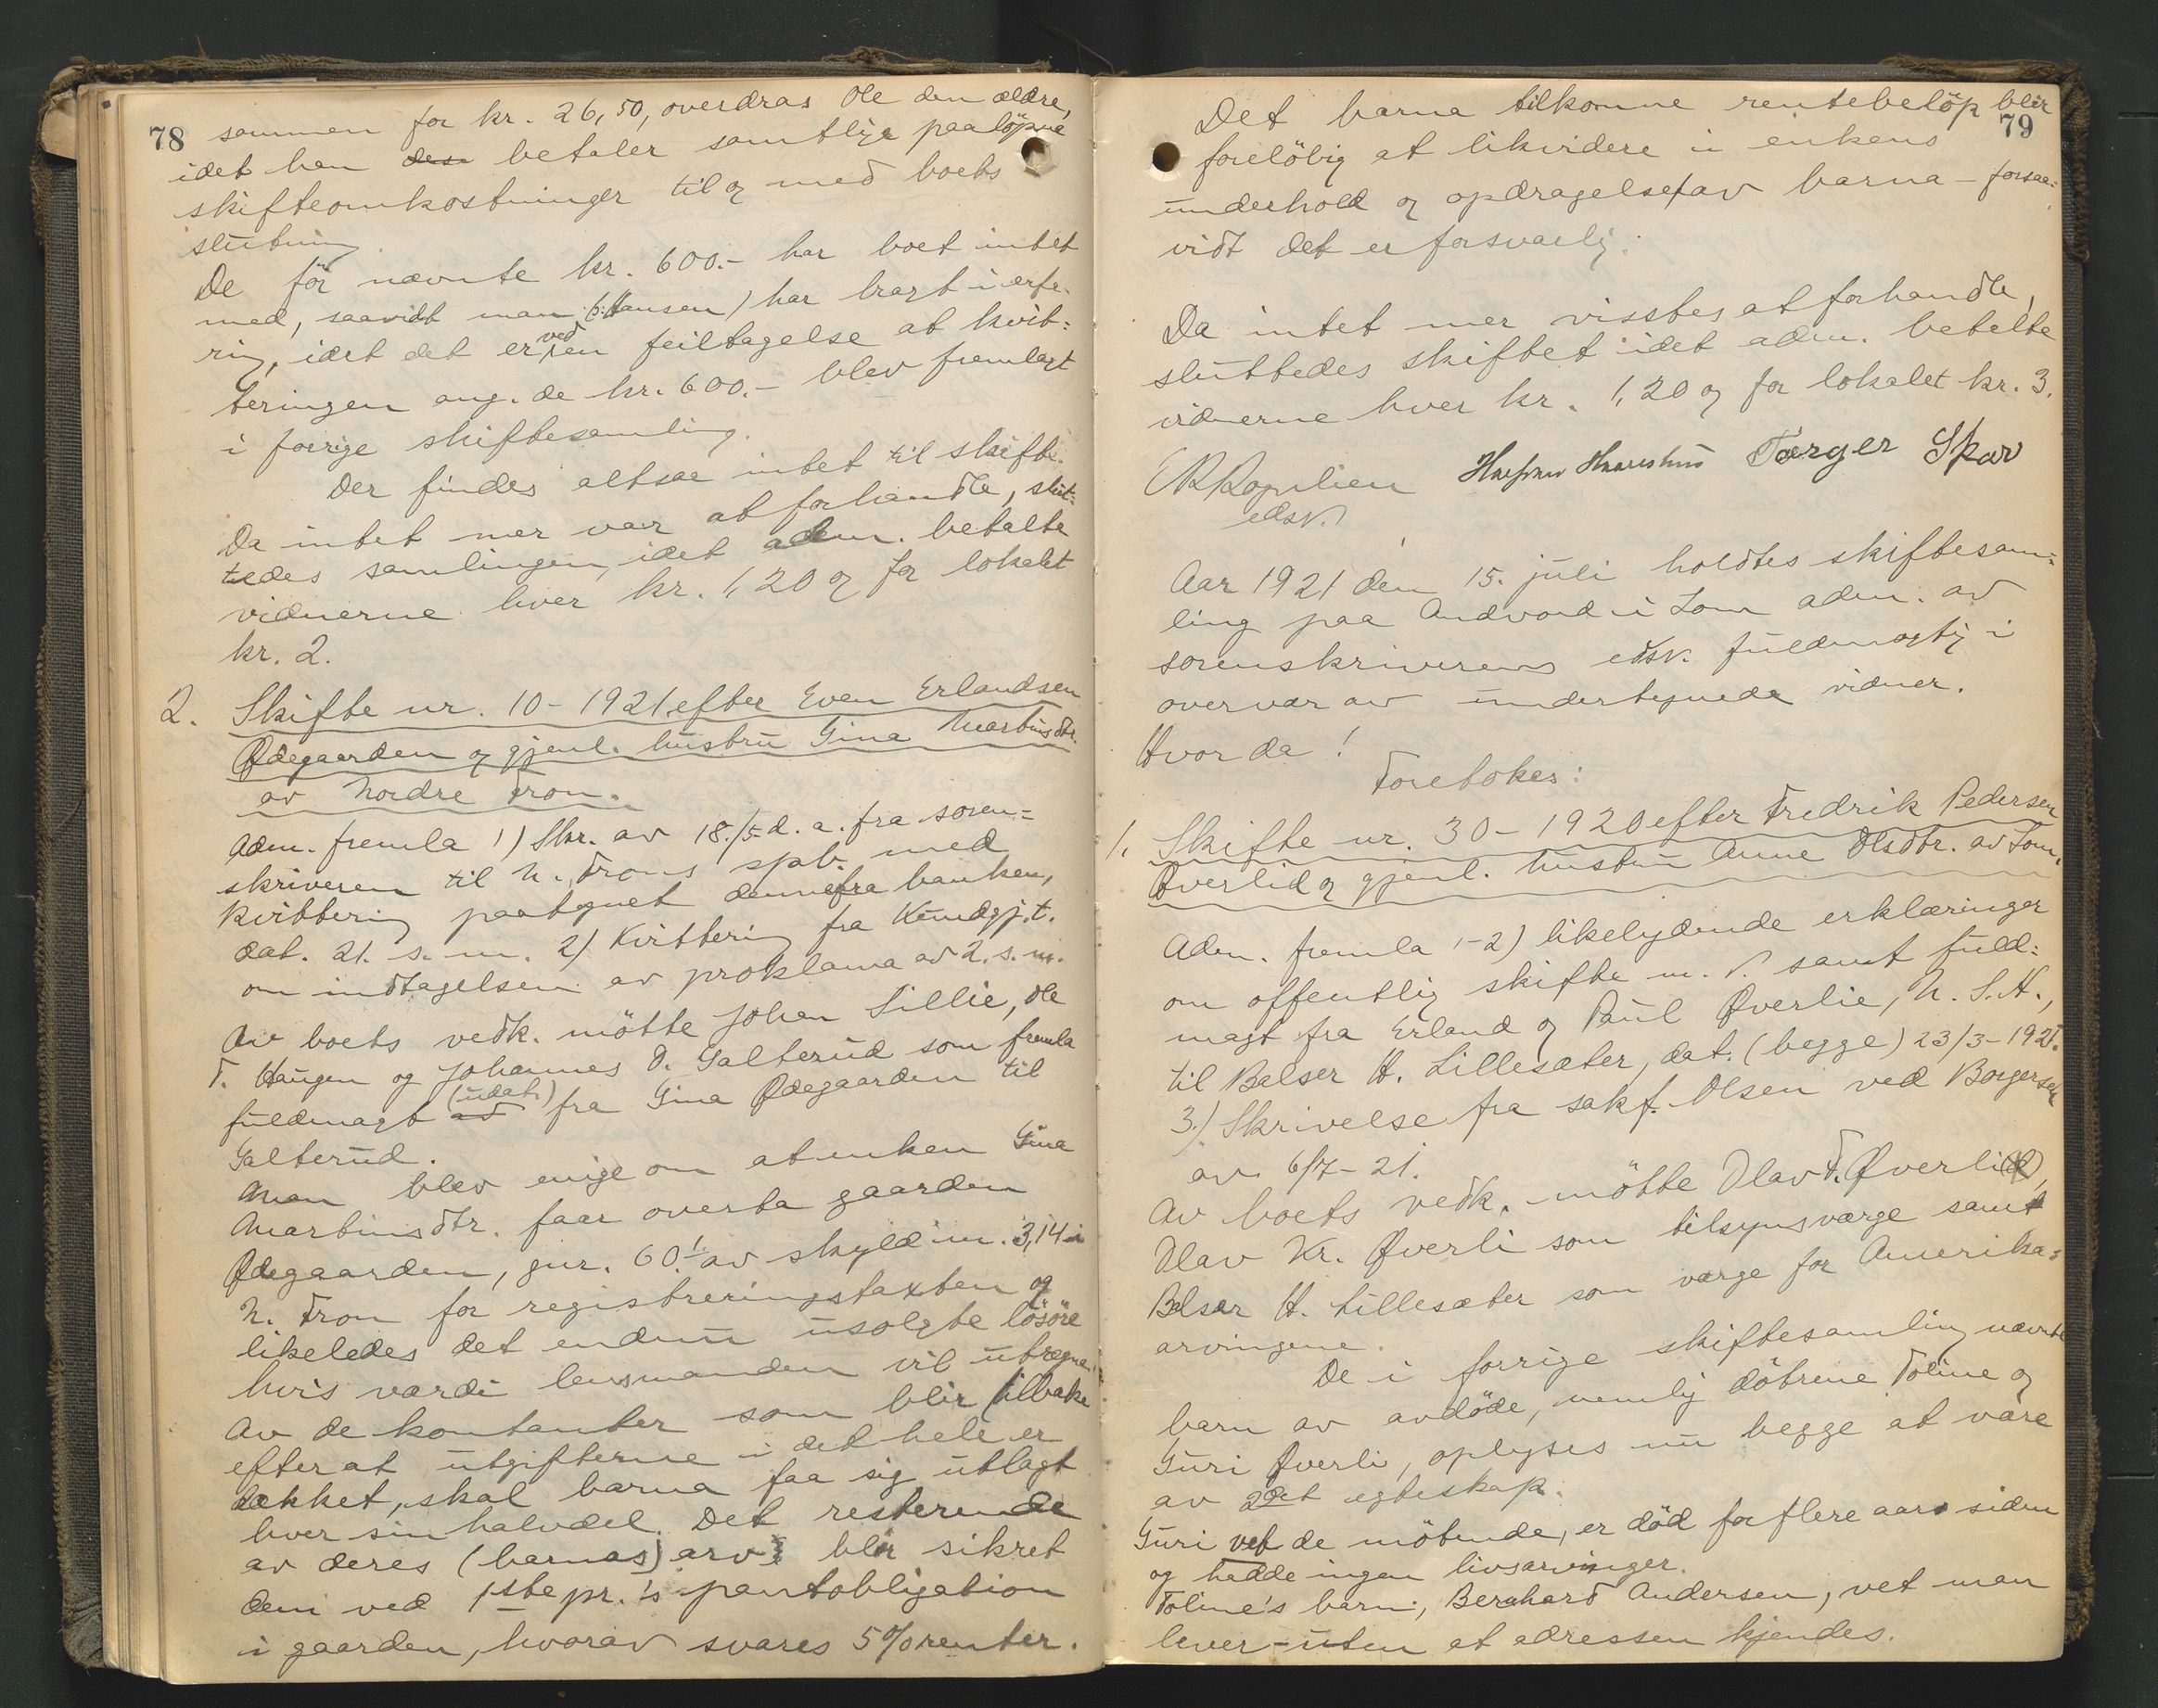 78
sammen for kr. 26,50, overdras Ole den ældre,
idet han betaler samtlige paaløpne
skifteomkostninger til og med boets
slutning.
De før nævnte kr. 600.- har boet intet
med, saavidt man (: Hansen) har bragt i erfa-
ring, idet det er ved en feiltagelse at kvit-
teringen ang. de kr. 600.- blev fremlagt
i forrige skiftesamling.
Der findes altsaa intet til skifte.
Da intet mer var at forhandle, slut-
tedes samlingen, idet adm. betalte
vidnerne hver kr. 1,20 og for lokalet
kr. 2.
2. Skifte nr. 10 - 1921 efter Even Erlandsen
Ødegaarden og gjenl. hustru Gina Martinsdtr.
av Nordre Fron.
Adm. fremla 1) Skr. av 18./5 d. a. fra soren-
skriveren til N. Frons spb. med
kvittering paategnet denne fra banken,
dat. 21. s. m. 2) Kvittering fra Kundgj.t.
om indtagelsen av proklama av 2. s. m.
Av boets vedk. møtte Johan Lillie, Ole
T. Haugen og Johannes O. Galterud som fremla
fuldmagt (udat.) fra Gina Ødegaarden til
Galterud.
Man blev enige om at enken Gina
Martinsdtr. faar overta gaarden
Ødegaarden, gnr. 60.1 av skyld m. 3,14 i
N. Fron for registreringstaxten og
likeledes det endnu usolgte løsøre
hvis værdi lensmanden vil utregne.
Av de kontanter som blir tilbake
efter at utgifterne i det hele er
dækket, skal barna faa sig utlagt
hver sin halvdel. Det resterende
av deres (barnas) arv blir sikret
dem ved 1ste pr.'s pantobligation
i gaarden, hvorav svares 5% renter.
79
Det barna tilkomne rentebeløp blir
foreløbig at likvidere i enkens
underhold og opdragelse av barna - forsaa-
vidt det er forsvarlig.
Da intet mer visstes at forhandle,
sluttedes skiftet idet adm. betalte
vidnerne hver kr. 1,20 og for lokalet kr. 3.
Torger Skar
edsv.
Aar 1921 den 15. juli holdtes skiftesam-
ling paa Andvord i Lom adm. av
sorenskriverens edsv. fuldmægtig i
overvær av undertegnede vidner.
Hvor da!
Foretokes:
1. Skifte nr. 30 - 1920 efter Fredrik Pedersen
Øverlid og gjenl. hustru Anne Olsdtr. av Lom.
Adm. fremla 1-2) likelydende erklæringer
om offentlig skifte m. v. samt fuld-
magt fra Erland og Paul Øverlie, N. S. A.,
til Balser H. Lillesæter, dat. (begge) 23/3 - 1921.
3.) Skrivelse fra sakf. Olsen ved Borgersen
av 6/7 - 21.
Av boets vedk. møtte Olav F. Øverlid,
Olav Kr. Øverli som tilsynsværge samt
Balser H. Lillesæter som værge for Amerika-
arvingene.
De i forrige skiftesamling nævnte
barn av avdøde, nemlig døtrene Toline og
Guri Øverli, oplyses nu begge at være
av 2det egteskap.
Guri vet de møtende, er død for flere aar siden
og hadde ingen livsarvinger.
Toline's barn, Bernhard Andersen, vet man
lever - uten at adressen kjendes.